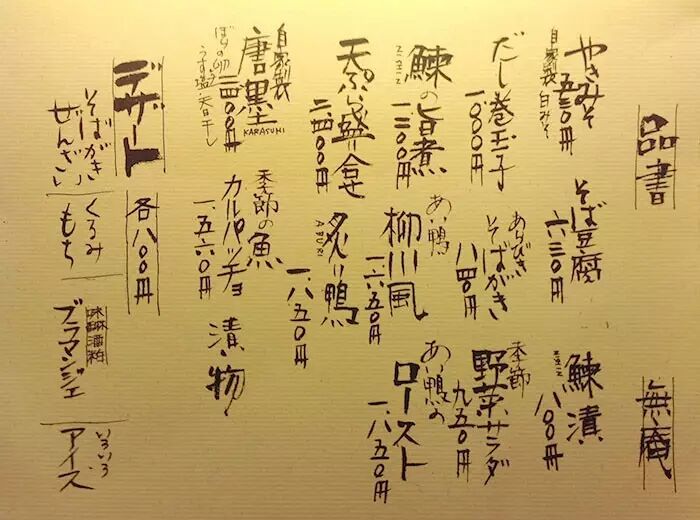 品書
無庵
やきみそ
五三〇円
自家製 白みそ
そば豆腐
六三〇円
鰊漬
ニシン
八〇〇円
だし巻玉子
一、〇〇〇円
あらびき
そばがき
八四〇円
季節
野菜サラダ
九五〇円
鰊の旨煮
ニシン
一、三〇〇円
あい鴨
柳川風
一、六五〇円
あい鴨の
ロースト
一、八五〇円
天ぷら盛り合せ
二、四〇〇円
炙り鴨
ABURI
一、八五〇円
自家製
唐墨
KARASUMI
二、四〇〇円
ぼらの卵
うす塩天日干し
季節の魚
カルパッチョ
一、五六〇円
漬物
デザート
各八〇〇円
そばがき
ぜんざい
くるみ
もち
味醂酒粕
ブラマンジェ
いろいろ
アイス